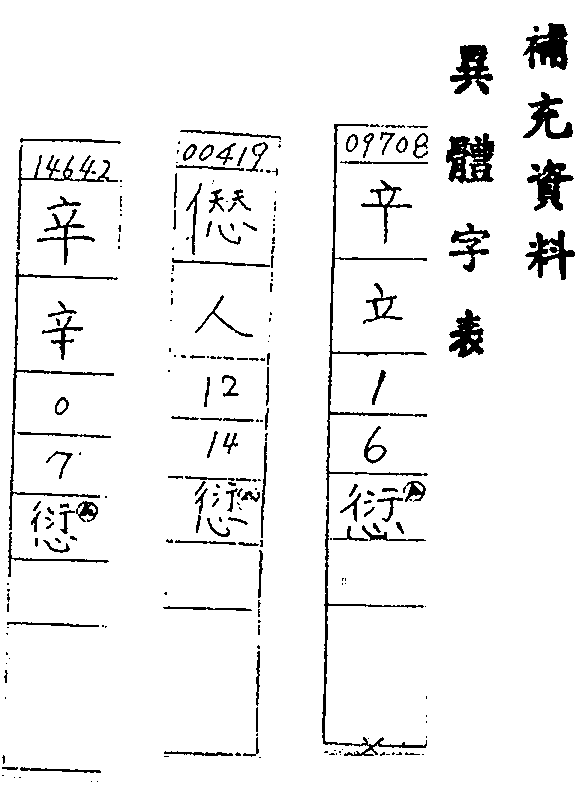 補充資料
異體字表
09708
立
1
6
愆
00419
人
12
14
愆
14642
辛
辛
0
7
愆